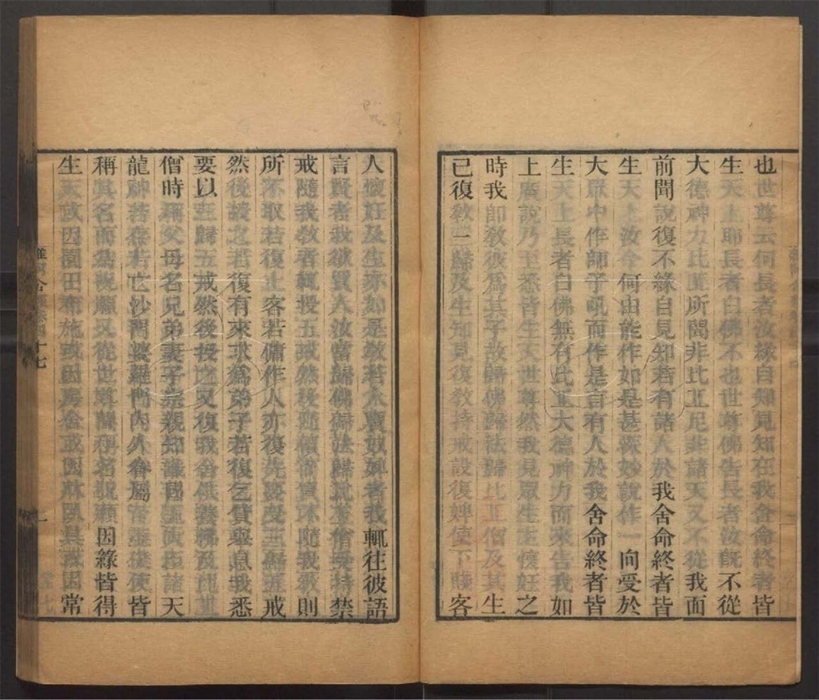 也世尊云何長者汝緣自知見知在我舍命終者皆
生天上耶長者白佛不也世尊佛告長者汝旣不從
大德神力比丘所聞非比丘尼非諸天又不從我面
前聞說復不緣自見知若有諸人於我舍命終者皆
生天上汝今何由能作如是甚深妙說作一向受於
大眾中作師子吼而作是言有人於我舍命終者皆
生天上長者白佛無有比丘大德神力而來告我如
上廣說乃至悉皆生天世尊然我見眾生主懷妊之
時我卽敎彼爲其子故歸佛歸法歸比丘僧及其生
已復敎三歸及生知見復敎持戒設復婢使下賤客
人懷妊及生亦如是敎若人賣奴婢者我輒往彼語
言賢者我欲買人汝當歸佛歸法歸比丘僧受持禁
戒隨我敎者輒授五戒然後隨價而買不隨我敎則
所不取若復止客若傭作人亦復先要受三歸五戒
然後授之若復有來求爲弟子若復乞貸舉息我悉
要以三歸五戒然後授之又復我舍供養佛及比丘
僧時稱父母名兄弟妻子宗親知識國王大臣諸天
龍神若存若亡沙門婆羅門內外眷屬下至僕使皆
稱其名而爲呪願又從世尊聞稱名呪願因緣皆得
生天或因園田布施或因房舍或因牀臥具或因常